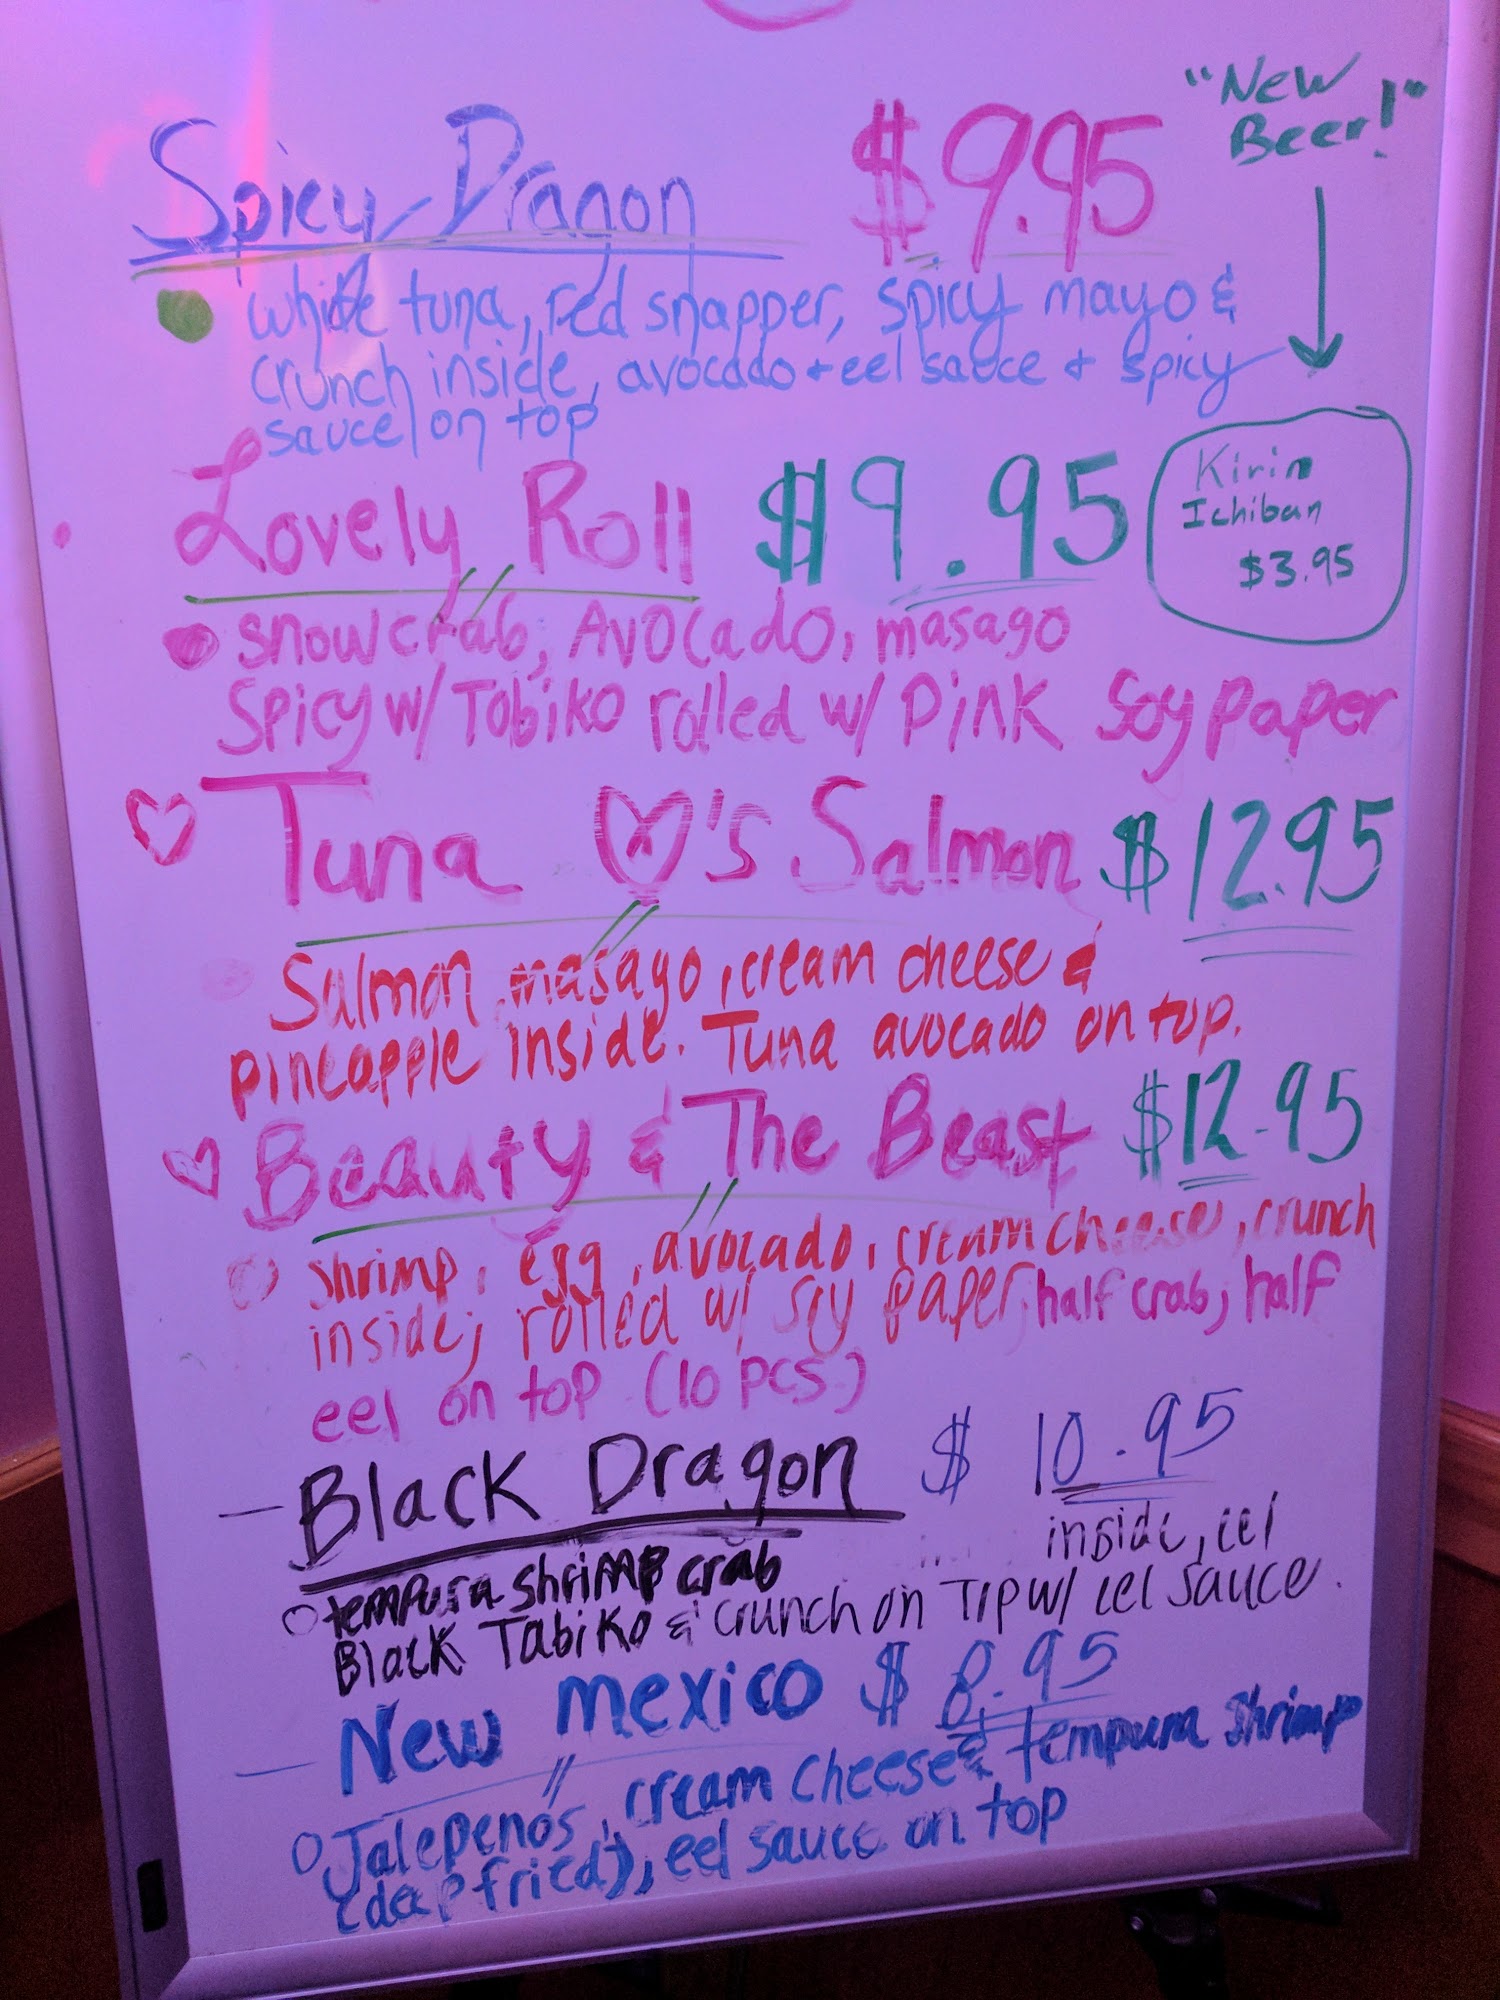 Spicy Dragon $9.95
"New
Beer!"
white tuna, red snapper, spicy mayo &
crunch inside, avocado + eel sauce + spicy
sauce on top
Lovely Roll $9.95
Kirin
Ichiban
$3.95
snowcrab, Avocado, masago
Spicy w/ Tobiko rolled w/ Pink Soy paper
Tuna ♡'s Salmon $12.95
Salmon, masago, cream cheese &
pineapple inside. Tuna avocado on top.
Beauty & The Beast $12.95
shrimp, egg, avocado, cream cheese, crunch
inside; rolled w/ soy paper, half crab, half
eel on top (10 pcs)
Black Dragon $10.95
tempura shrimp crab inside, eel
Black Tabiko & crunch on Top w/ eel sauce.
New mexico $8.95
Jalepenos, cream cheese & tempura shrimp
(deep fried), eel sauce on top